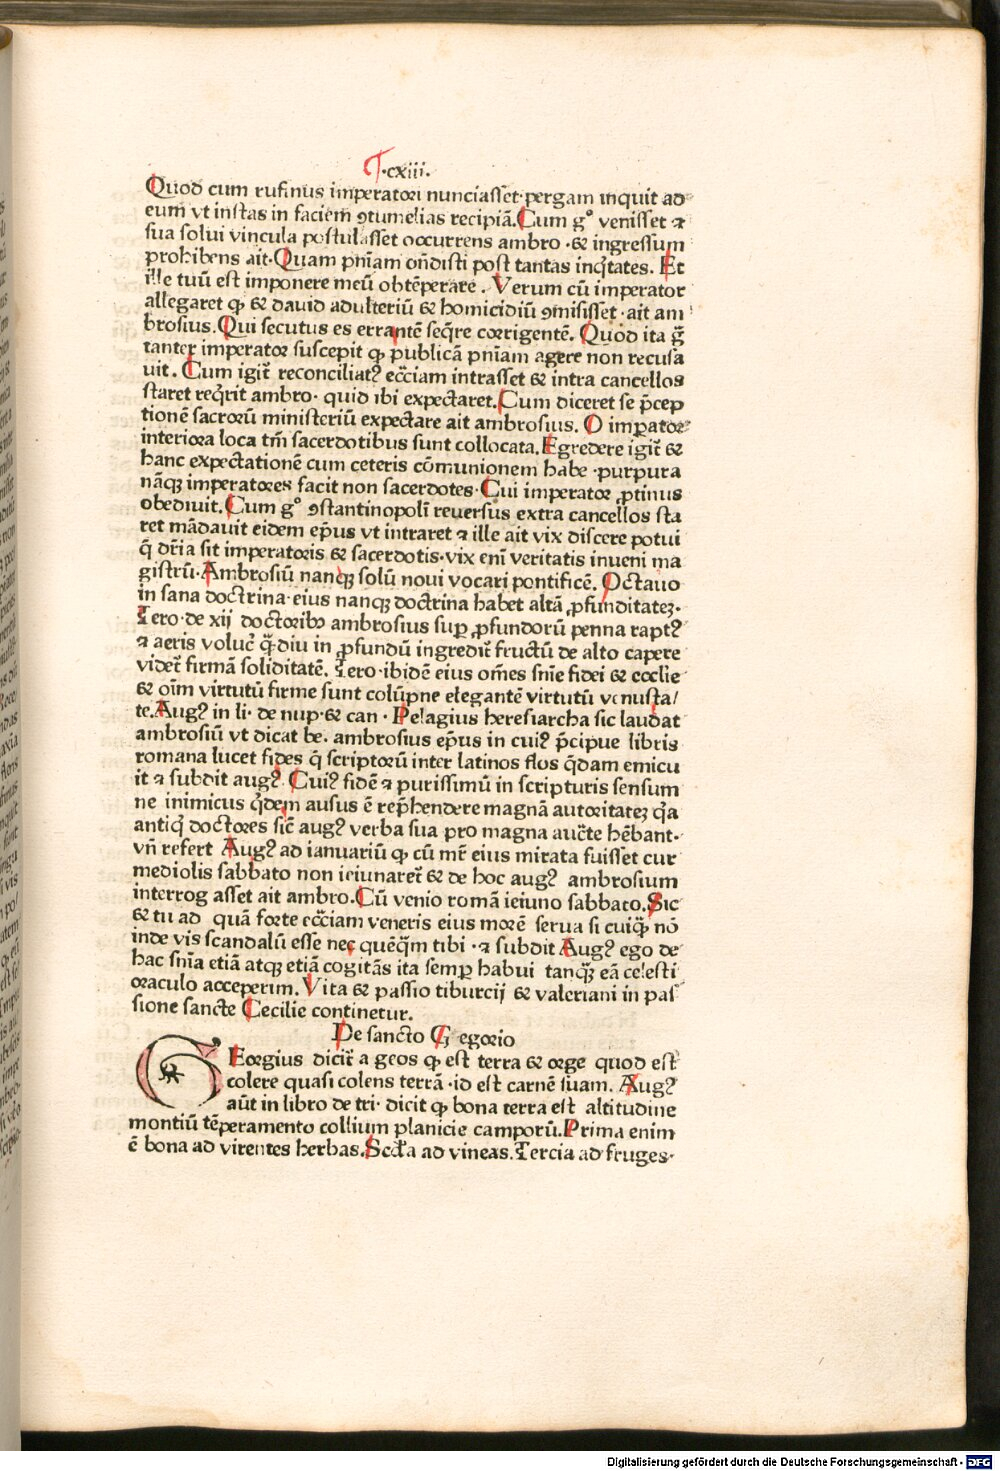 ·cxiii.
Quod cum rufinus imperatori nunciasset·pergam inquit ad
eum vt iustas in faciem ꝯtumelias recipiã. Cum gº venisset ⁊
sua solui vincula postulasset occurrens ambro·& ingressum
prohibens ait·Quam pñiam oñdisti post tantas inq̃tates. Et
ille tuũ est imponere meũ obtẽperare. Verum cũ imperator
allegaret ꝙ & dauid adulteriũ & homicidiũ ꝯmisisset·ait am
brosius. Qui secutus es errantẽ seq̃re corrigentẽ. Quod ita g̃
tanter imperator suscepit ꝙ publicã pñiam agere non recusa
uit. Cum igit̃ reconciliatꝰ ecc̃iam intrasset & intra cancellos
staret req̃rit ambro· quid ibi expectaret. Cum diceret se p̃cep
tionẽ sacrorũ ministeriũ expectare ait ambrosius. O imꝑator
interiora loca tm̃ sacerdotibus sunt collocata. Egredere igit̃ &
hanc expectationẽ cum ceteris cõmunionem habe·purpura
nãqꝫ imperatores facit non sacerdotes·Cui imperator ꝓtinus
obediuit. Cum gº ꝯstantinopolĩ reuersus extra cancellos sta
ret mãdauit eidem ep̃us vt intraret ⁊ ille ait vix discere potui
q̃ dr̃ia sit imperatoris & sacerdotis·vix eñi veritatis inueni ma
gistrũ·Ambrosiũ nanqꝫ solũ noui vocari pontificẽ. Octauo
in sana doctrina·eius nanqꝫ doctrina habet altã ꝓfunditateꝫ·
Iero·de xij doctoribꝰ ambrosius suꝑ ꝓfundorũ penna raptꝰ
⁊ aeris voluc̃ q̃diu in ꝓfundũ ingredit̃ fructũ de alto capere
videt̃ firmã soliditatẽ. Iero·ibidẽ eius om̃es sñie fidei & ecclie
& oĩm virtutũ firme sunt colũpne elegantẽ virtutũ venusta/
te. Augꝰ in li· de nup·& can·Pelagius heresiarcha sic laudat
ambrosiũ vt dicat be. ambrosius ep̃us in cuiꝰ p̃cipue libris
romana lucet fides q̃ scriptorũ inter latinos flos q̃dam emicu
it ⁊ subdit augꝰ. Cuiꝰ fidẽ ⁊ purissimũ in scripturis sensum
ne inimicus q̃dem ausus ẽ rep̃hendere magnã autoritateꝫ q̃a
antiq̃ doctores sic̃ augꝰ verba sua pro magna auc̃te hẽbant·
vñ refert Augꝰ ad ianuariũ ꝙ cũ mr̃ eius mirata fuisset cur
mediolis sabbato non ieiunaret̃ & de hoc augꝰ ambrosium
interrog asset ait ambro. Cũ venio romã ieiuno sabbato. Sic
& tu ad quã forte ecc̃iam veneris eius morẽ serua si cuiq̃ nõ
inde vis scandalũ esse nec quẽq̃m tibi·⁊ subdit Augꝰ ego de
hac sñia etiã atqꝫ etiã cogitãs ita semꝑ habui tanq̃ꝫ eã celesti
oraculo acceperim. Vita & passio tiburcij & valeriani in pas
sione sancte Cecilie continetur.
De sancto G egorio
GEorgius dicit̃ a geos ꝙ est terra & orge quod est
colere quasi colens terrã·id est carnẽ suam. Augꝰ
aũt in libro de tri· dicit ꝙ bona terra est altitudine
montiũ tẽperamento collium planicie camporũ. Prima enim
ẽ bona ad virentes herbas. Scd̃a ad vineas. Tercia ad fruges·
Digitalisierung gefördert durch die Deutsche Forschungsgemeinschaft - DFG